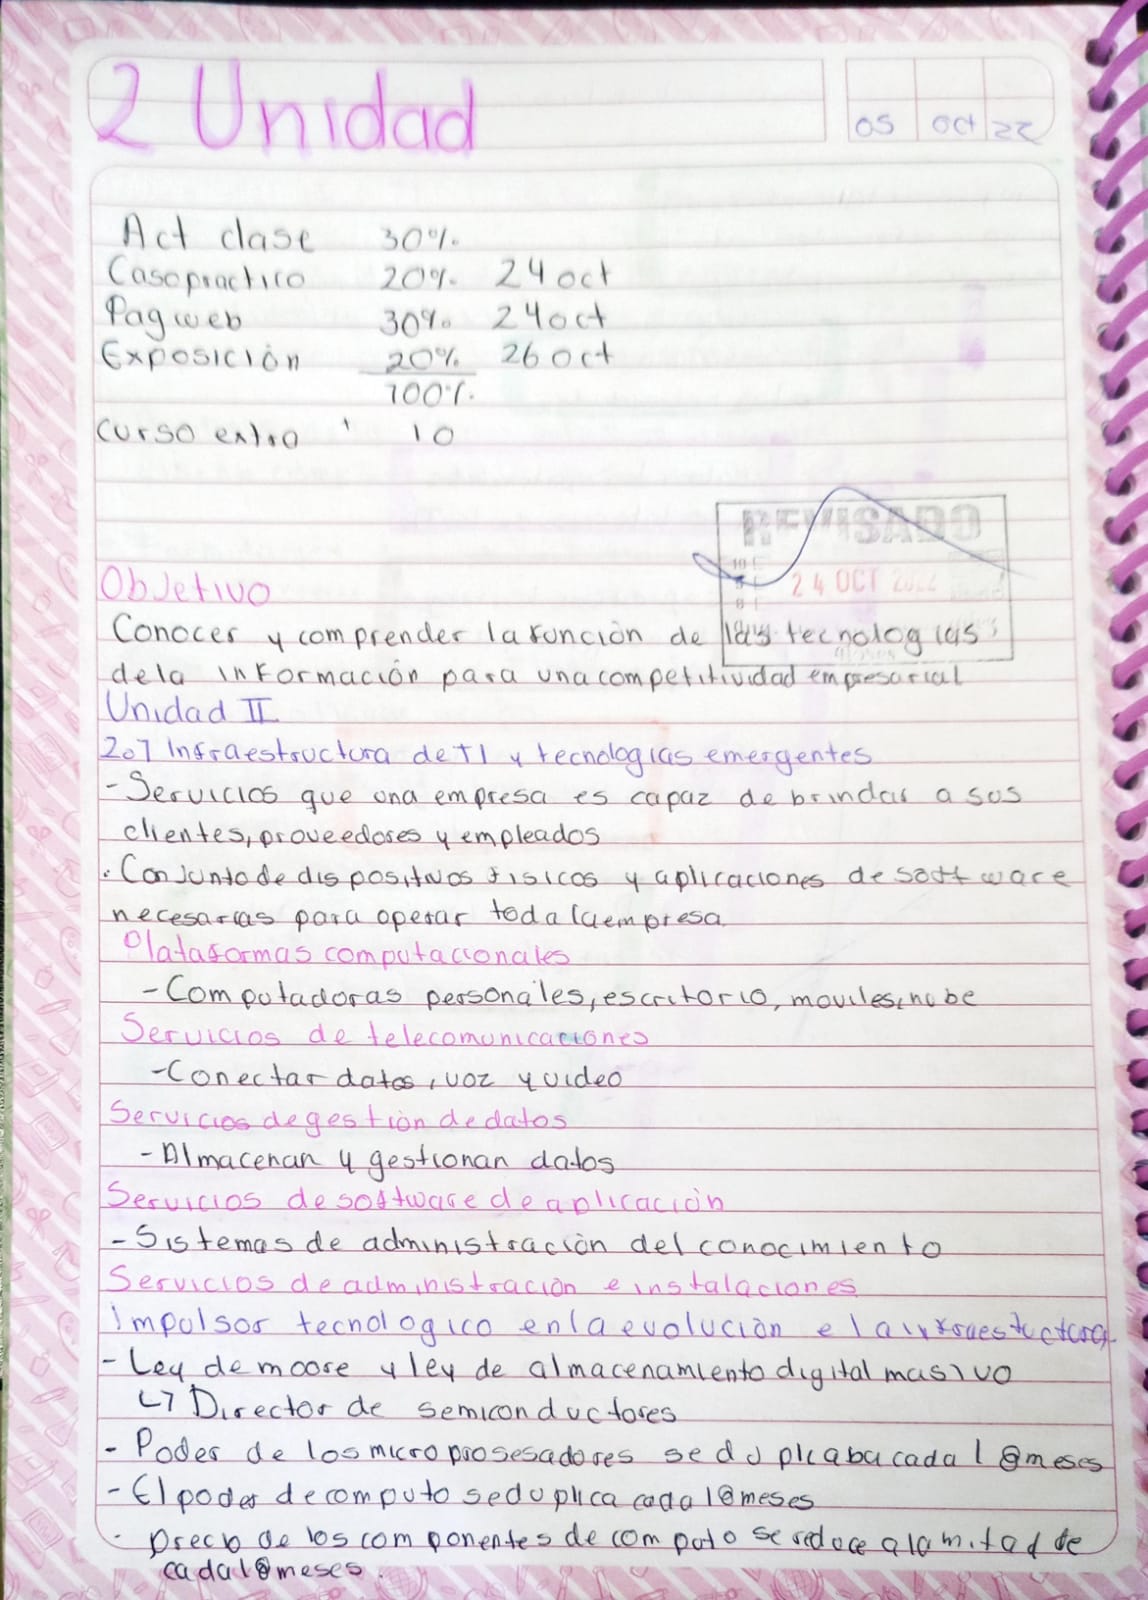 2 Unidad
05 oct 22
Act clase 30%.
Caso practico 20%. 24 oct
Pag web 30%. 24 oct
Exposición 20%. 26 oct
100%.
curso extra 10
REVISADO
10
9
8
24 OCT 2022
Objetivo
Conocer y comprender la función de las tecnologias
de la información para una competitividad empresarial
Unidad II
2.1 Infraestructura de TI y tecnologias emergentes
- Servicios que una empresa es capaz de brindar a sus
clientes, proveedores y empleados
· Conjunto de dispositivos fisicos y aplicaciones de software
necesarias para operar toda la empresa
Plataformas computacionales
- Computadoras personales, escritorio, moviles, nube
Servicios de telecomunicaciones
- Conectar datos, voz y video
Servicios de gestión de datos
- Almacenan y gestionan datos
Servicios de software de aplicación
- Sistemas de administración del conocimiento
Servicios de administración e instalaciones
Impulsor tecnologico en la evolución e la infraestuctura
- Ley de moore y ley de almacenamiento digital masivo
↳ Director de semiconductores
- Poder de los microprosesadores se duplicaba cada 18 meses
- El poder de computo se duplica cada 18 meses
- precio de los componentes de computo se reduce a la mitad de
cada 18 meses.